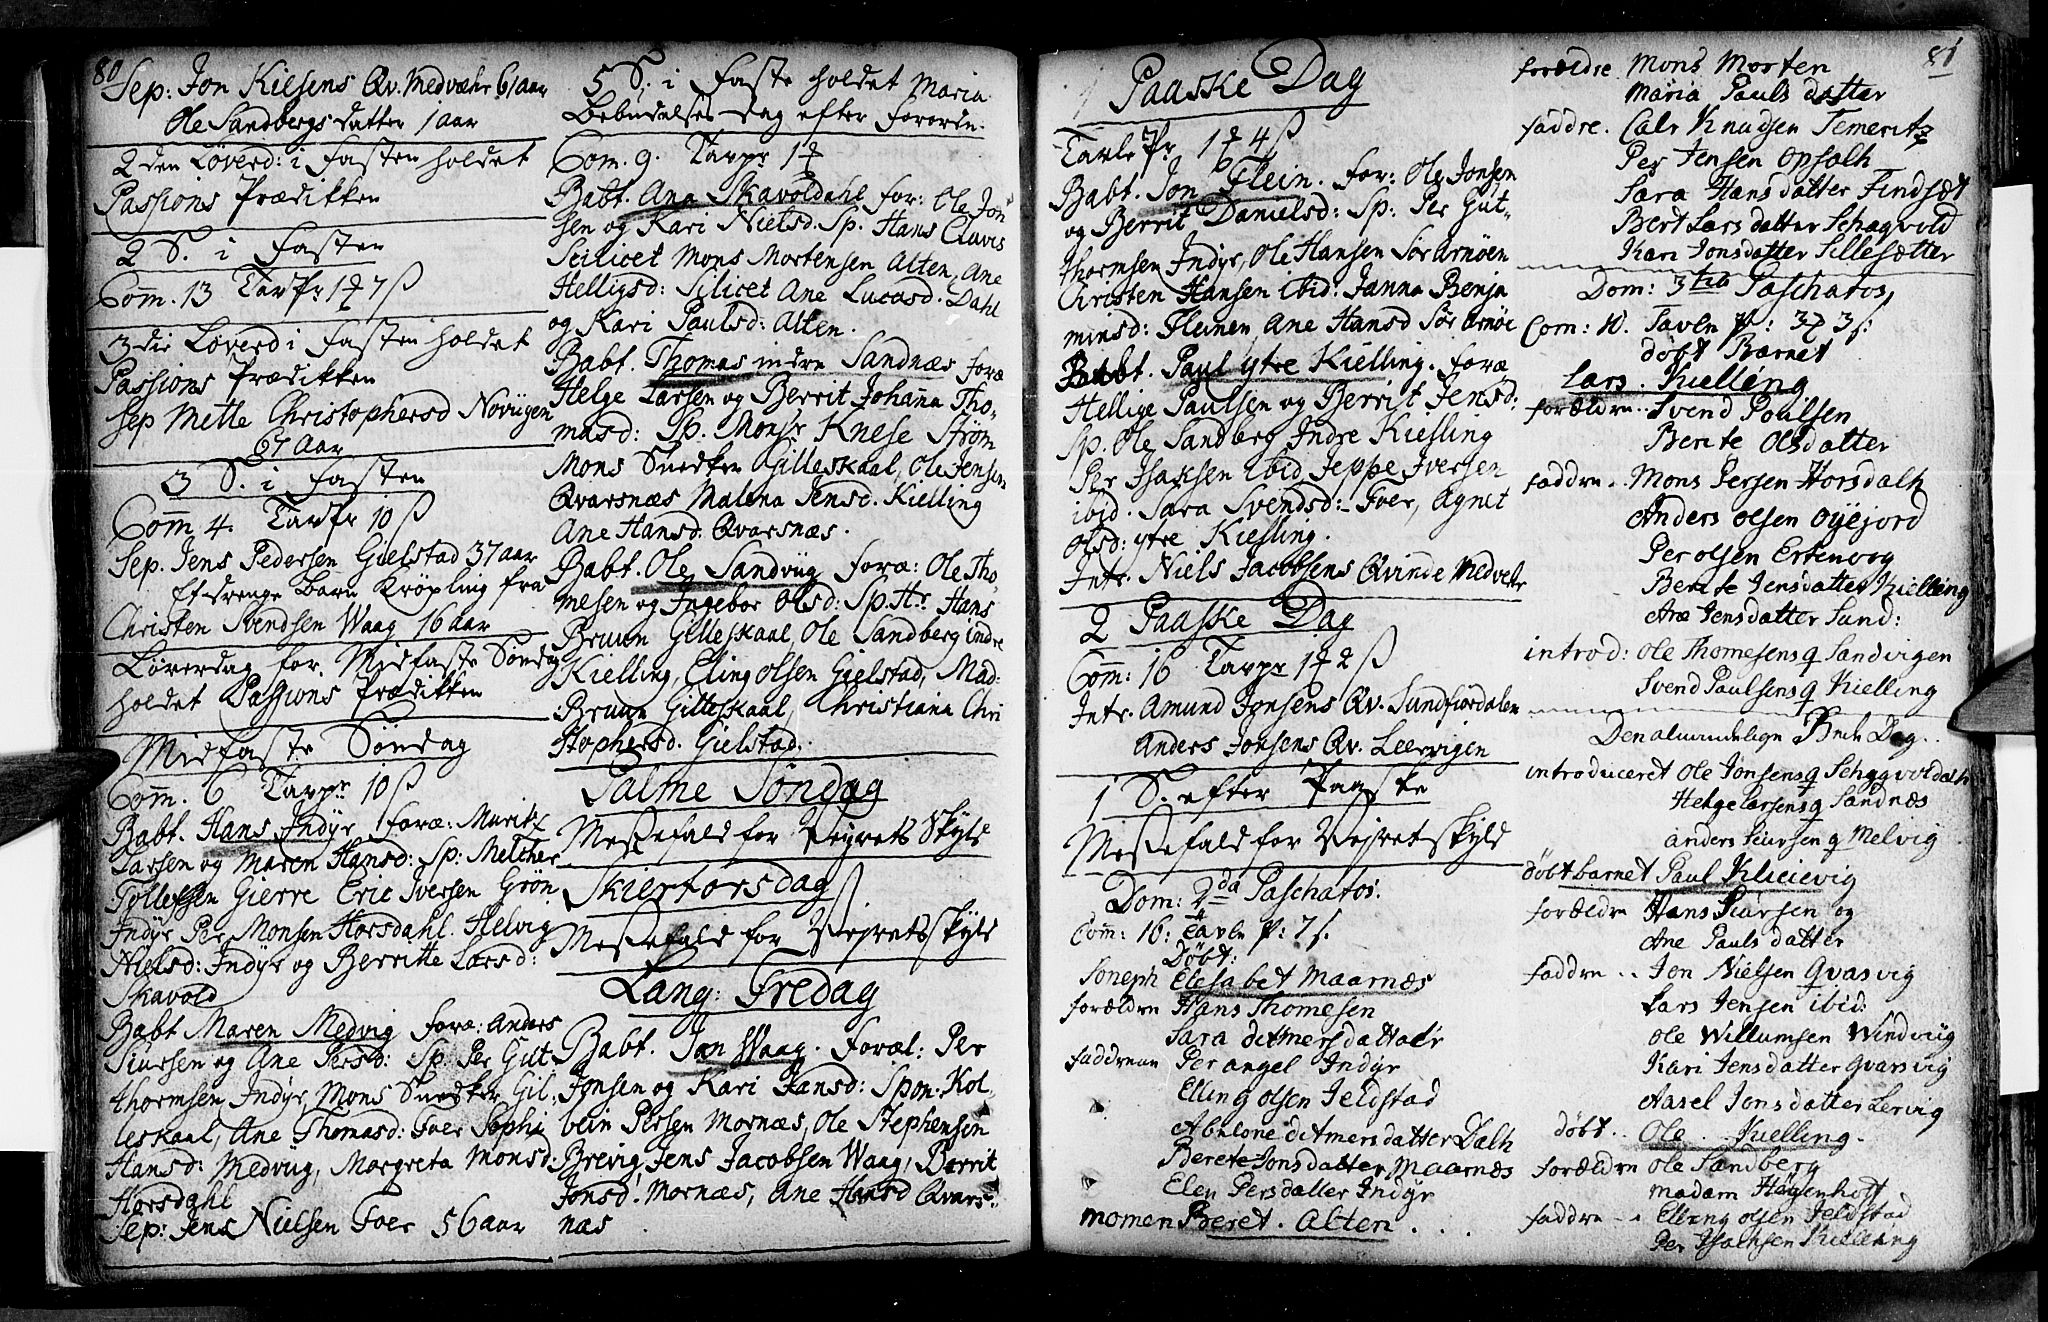 80
Sep: Jon Kielsens Qv. Medvæhr 61 aar
Ole Sandbergs datter 1 aar
2 den Løverd: i Fasten holdet
Passions Prædikken
2 S. i Fasten
Com̄. 13 Tavpr 1 ƶ 7 ß
3 die Løverd i Fasten holdet
Passions Prædikken
Sep Mette Christophersd Novügen
67 Aar
3 S. i Fasten
Com̄ 4. Tavpr 10 ß
Sep. Jens Pedersen Gielstad 37 aar
Et drenge Barn Krøpling fra
Christen Svendsen Waag 16 aar
Løverdag for Midfaste Søndag
holdet Passions Prædikken
Midfaste Søndag
Com̄. 6 Tavpr 10 ß
Babt. Hans Indyr foræ: Muritz
Larsen og Maren Hansd: Sp: Melcher
Tollefsen Gierre Eric Iversen Grøn
Indyr Per Monsen Horsdahl. Helvig
Nielsd: Indyr og Berritte Larsd:
Skavold
Babt Maren Medvig foræ: Anders
Siursen og Ane Persd: Sp Per Gut
thormsen Indyr, Mons Snedker Gil:
leskaal, Ane Thomasd: Foer Sophi
Hansd: Medvug, Margreta Monsd:
Horsdahl
Sep: Jens Nielsen Foer 56 aar
5 S. i Faste holdet Maria
Bebudelses Dag efter Forordn.
Com. 9. Tavpr 1 ƶ
Babt. Ana Skavoldahl for: Ole Jon
sen og Kari Nielsd. Sp. Hans Clavis
Scilicet Mons Mortensen Alten, Ane
Helligsd: Silicet Ane Lucasd. Dahl
og Kari Paulsd: Alten.
Babt. Thomas indre Sandnæs foræ
Helge Larsen og Berrit Johanna Tho-
masd: Sp. Monsr Knese Strøm
Mons Snedker Gilleskaal, Ole Jensen
Qvarsnæs Malena Jensd. Kielling
Ane Hansd: Qvarsnæs.
Babt. Ole Sandvüg foræ: Ole Tho-
mesen og Ingebor Olsd: Sp. Hr. Hans
Bruun Gilleskaal Ole Sandberg indre
Kielling, Eling Olsen Gielstad, Mad:
Bruun Gilleskaal, Christiana Chri
stophersd. Gielstad.
Palme Søndag
Messefald for Veyrets Skyld
Skiertorsdag
Messefald for Veyrets Skyld
Lang: Fredag
Babt. Jan Waag. Foræl: Per
Jonsen og Kari Hansd: Spon: Kol-
bein Persen Mornæs, Ole Stephensen
Brevig Jens Jacobsen Waag, Berrit
Jonsd: Mornæs, Ane Hansd Qvars-
næs
Paaske Dag
Tavle Pr 1 ƶ 4 ß
Babt. Jon Flein. for: Ole Jonsen
og Berrit Danielsd: Sp: Per Gut-
thormsen Indyr, Ole Hansen Sør Arnøen
Christen Hansen ibid: Janna Benja
minsd: Fleinen Ane Hansd Sør Arnøe
Babt. Paul ytre Kielling. foræ
Hellige Paulsen og Berrit Jensd:
Sp. Ole Sandberg Indre Kielling
Per Isaksen ibid Jeppe Iversen
ibid. Sara Svendsd: Foer, Agnet
Olsd: ytre Kielling.
Intr. Niels Jacobsens Qvinde Medvehr
2 Paaske Dag
Com̄: 16 Tavpr 1 ƶ 2 ß
Intr. Amund Jonsens Qv. Sundfiordalen
Anders Jonsens Qv. Leervigen
1 S. efter Paaske
Messefald for Vejret skyld
Dom: 2da Paschatos.
Com̄: 16: Tavln P: 7 s.
Døbt:
Elisabet Maarnæs
forældrn Hans Thomesen
Sara ditmersdatter
faddrene Per angel Indyr
Elling Olsen Jeldstad
Abelone ditmersdatter Dalh
Berete Jonsdatter Maarnæs
Elen Persdatter Indyr
Beret. Alten . .
81
forældre Mons Morten
Maria Pauls datter
faddre. Calr Knudsen Temeritz
Per Jensen Opsalh
Sara Hans datter Findsæt
Bert Lars datter Schagvold
Kari Jonsdatter Sillesætter
Dom: 3tia Paschatos
Com: 10. Tavln P: 3 ƶ 3 s:
døbt Barnet
Lars. Kielling
forældrn.. Svend Poulsen
Berete Olsdatter
faddrn .. Mons Persen Horsdalh
Anders Olsen Øyejord
Per Olsen Ertenvog
Berete Jensdatter Kielling
Ane Jensdatter Sund:
introd: Ole Thomesens q Sandvigen
Svend Paulsens q Kielling
Den almindelige Beede Dag..
introduceret Ole Jonsens q Schagvoldalh
Helge Larsens q Sandnæs
anders Siursen q Melvig
døbt barnet Paul Klicievig
forældrn Hans Siursen og
Ane Pauls datter
faddrn .. Jon Nielsen Qvasvig
Lars Jensen ibid:
Ole Willumsen Windvüg
Kari Jensdatter Qvarsvig
Aasel Jonsdatter Lervig
døbt.. Ole. Kielling.
forældrn Ole Sandberg
madam Høgenhoff
faddrn .. Elling Olsen Jeldstad
Per Isachsen Kielling